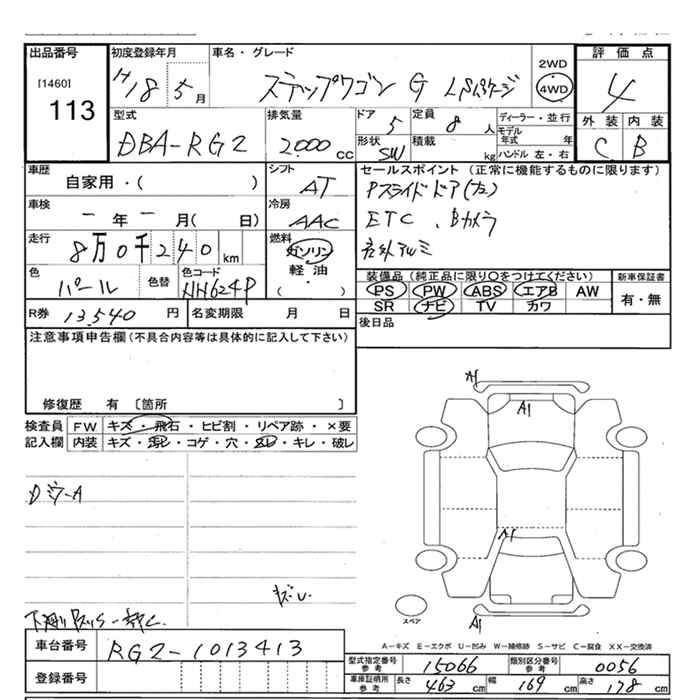 出品番号 初度登録年月 車名・グレード 2WD 評価点
[1460] H18 5月 ステップワゴン G LSパケージ 4WD 4
113
型式 排気量 ドア 定員 ディーラー・並行 外装 内装
DBA-RG2 2000 cc 5 8人 モデル年式 年 C B
形状 積載 ハンドル 左・右
SW kg
車歴 シフト セールスポイント (正常に機能するものに限ります)
自家用・( ) AT Pスライドドア(左)
車検 冷房 ETC、Bカメラ
一年一月( 日) AAC
走行 燃料 社外アルミ
8万0千240km ガソリン
軽油
( )
色 色替 色コード 装備品 (純正品に限り○をつけてください) 新車保証書
パール NH624P PS PW ABS エアB AW 有・無
SR ナビ TV カワ
R券 13,540円 名変期限 月 日 後日品
注意事項申告欄 (不具合内容等は具体的に記入して下さい)
修復歴 有 〔箇所 〕
検査員 FW キズ・飛石・ヒビ割・リペア跡・×要
記入欄 内装 キズ・汚レ・コゲ・穴・スレ・キレ・破レ
A1
A1
A1
スペア
車台番号 RG2-1013413
A-キズ E-エクボ U-凹み W-補修跡 S-サビ C-腐食 XX-交換済
登録番号
型式指定番号 参考 15066 類別区分番号 参考 0056
車庫証明用 参考 長さ 463cm 幅 169cm 高さ 178cm